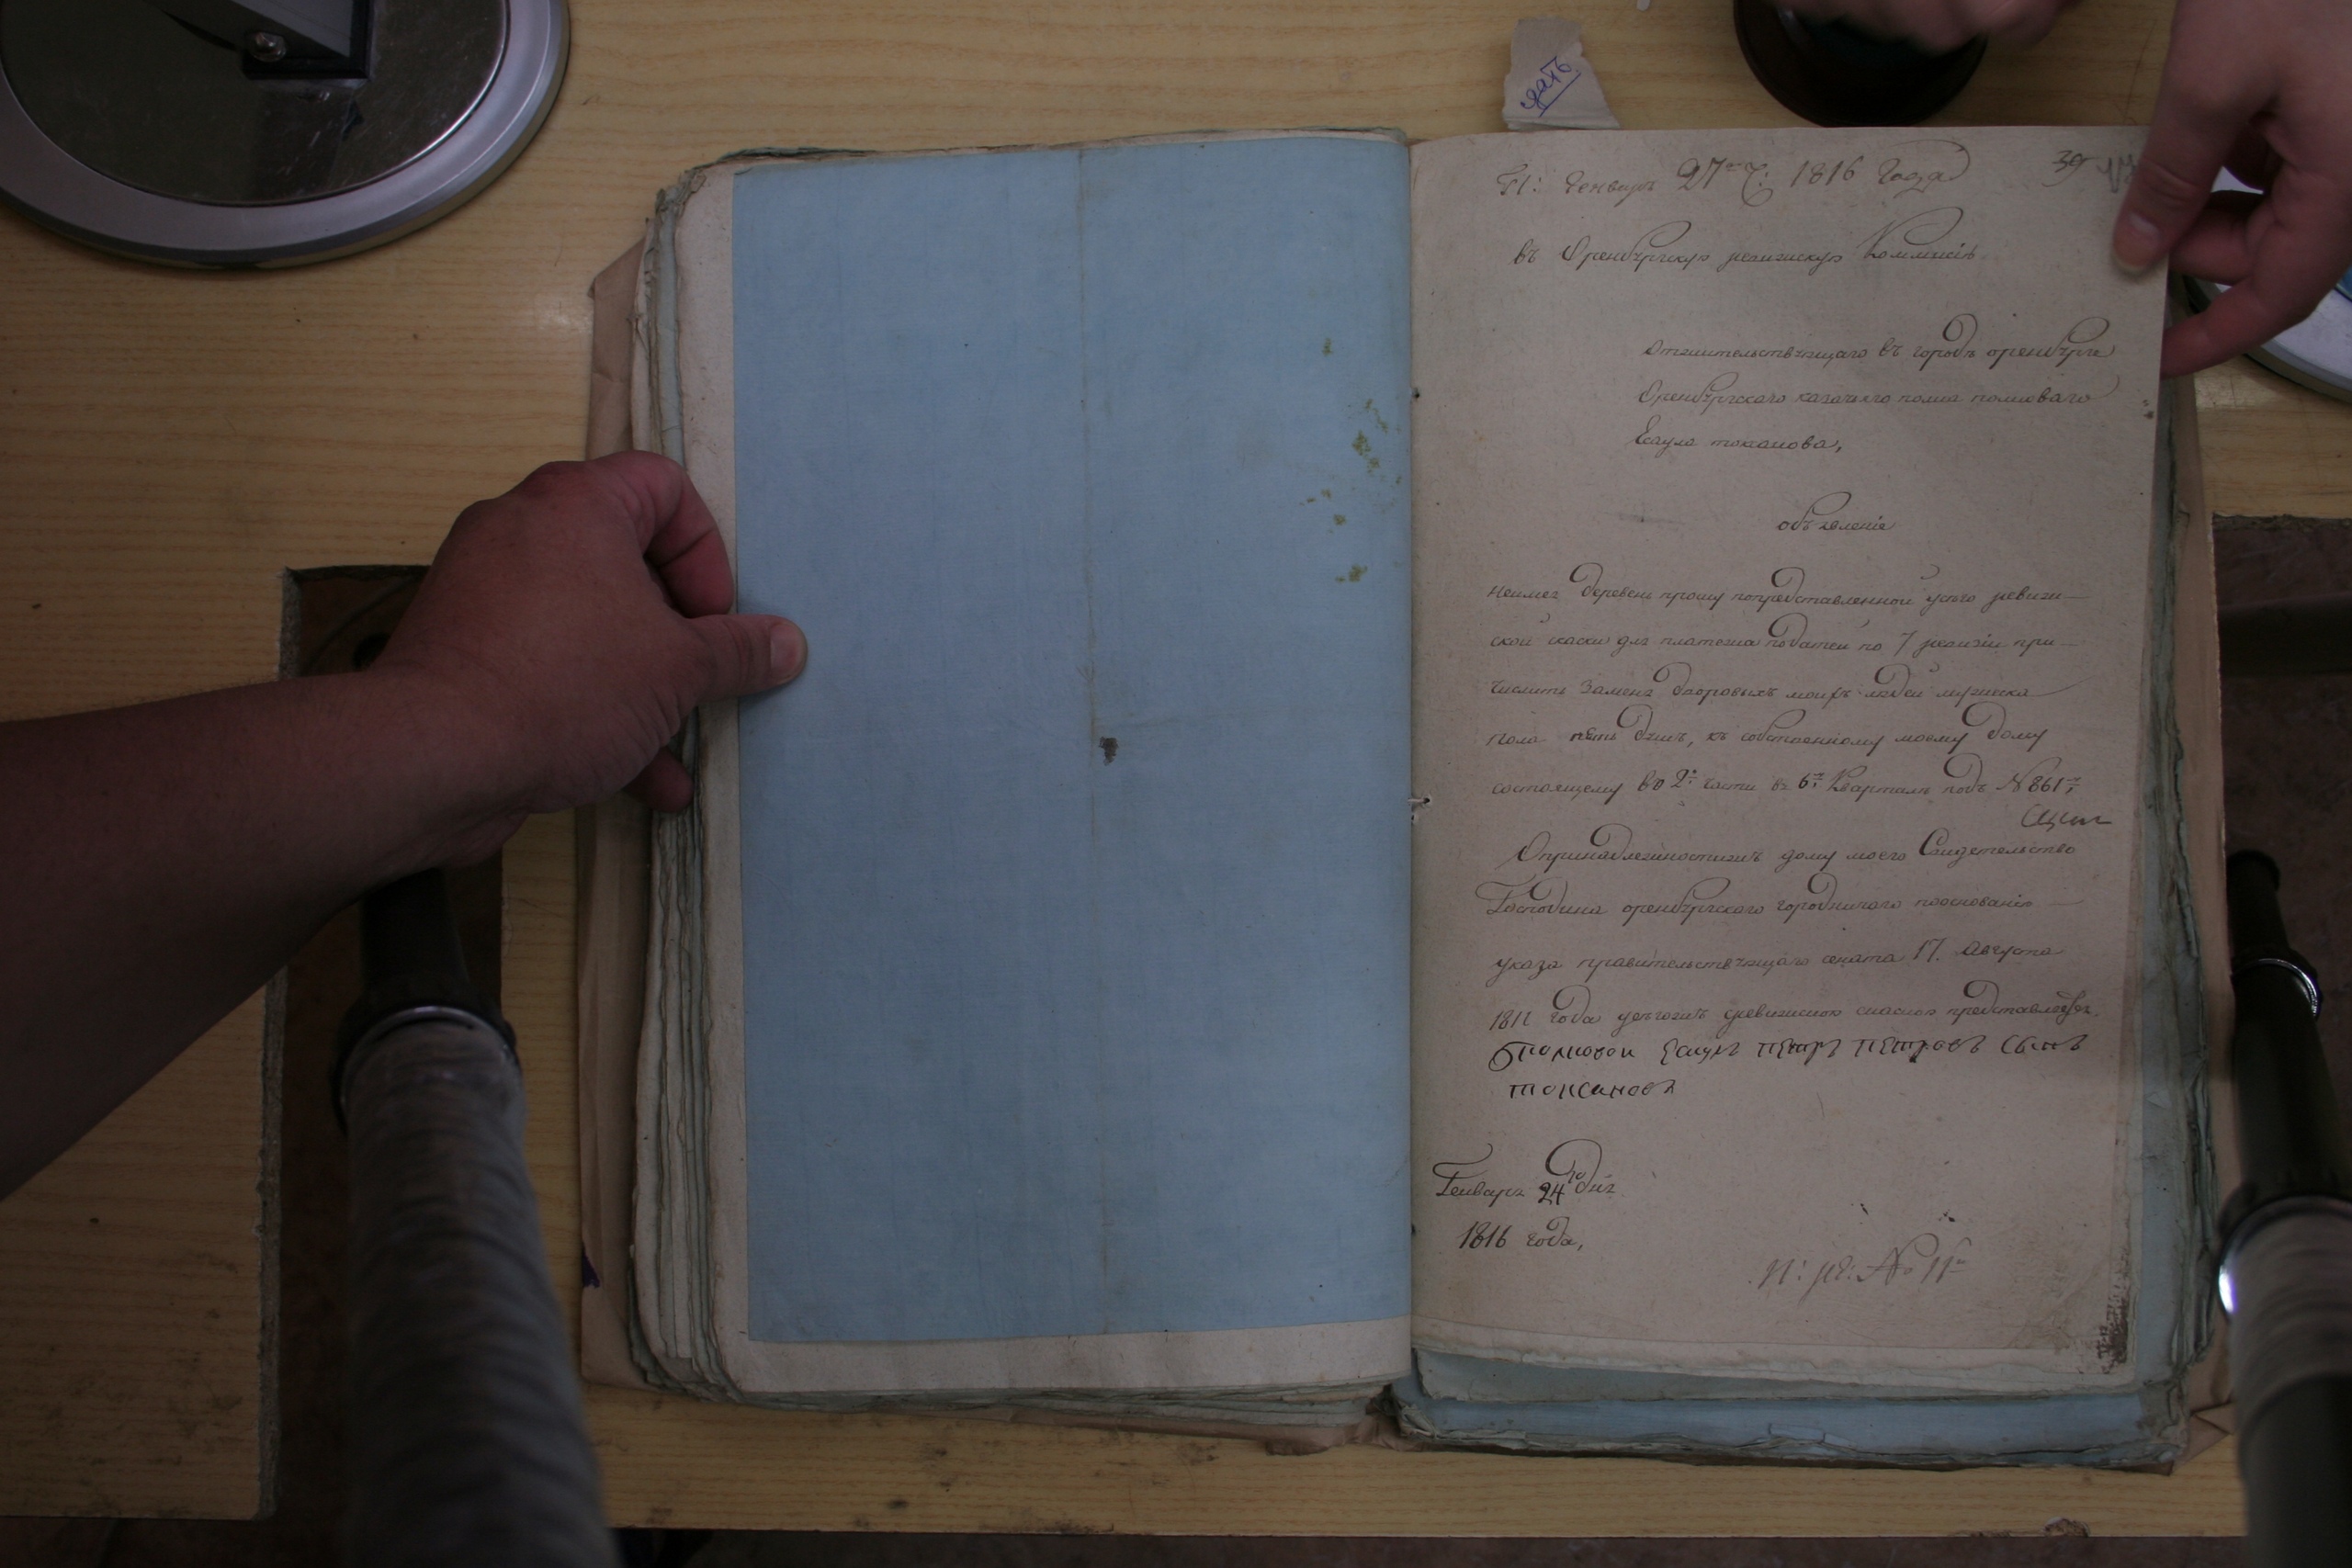 сдать
Генваря 27 1816 Года
39
въ Оренбургскую ревизскую Коммисiю
Отжительствующаго въ городѣ оренбурге
Оренбургскаго казачьяго полка полковаго
Есаула токманова,
объявленiе
неимея деревень прошу попредставленной усего ревизи-
ской скаски для платежа податей по 7 ревизiи при-
числить Заменя дворовыхъ моихъ людей мужеска
пола пять душъ, къ собственному моему дому
состоящему во 2й части въ 6м Кварталѣ подъ №861м
Опринадлежностижъ дому моего Свидетельство
Господина оренбургскаго городничаго пооснованiю
указа правительствующаго сената 17. Августа
1811 года
полковои Есаулъ Петръ Петровъ Сынъ
Генваря 24 дня
1816 года,
№ 11